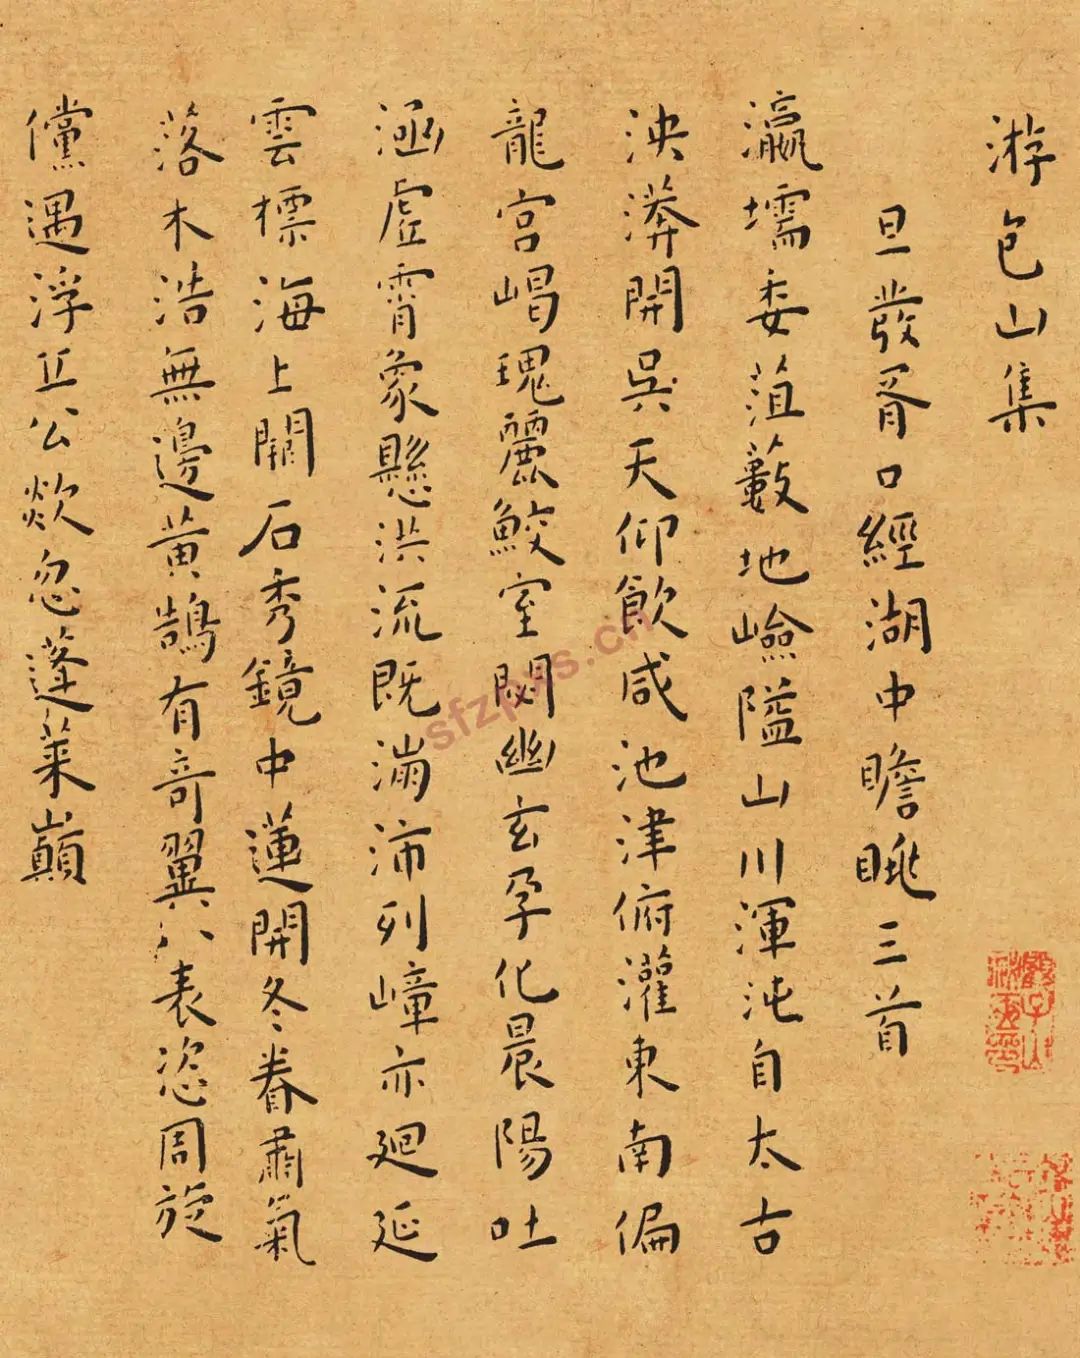 游包山集
旦發胥口經湖中瞻眺三首
瀛壖委菹藪地嶮隘山川渾沌自太古
泱漭開吳天仰飲咸池津俯灌東南偏
龍宮崐瑰麗鮫室閟幽玄孕化晨陽吐
涵虛霄象懸洪流既滿沛列嶂亦廻延
雲標海上闕石秀鏡中蓮開冬眷肅氣
落木浩無邊黃鵠有奇翼八表恣周旋
儻遇浮丘公欻忽蓬萊巔
sfzp.s.cn